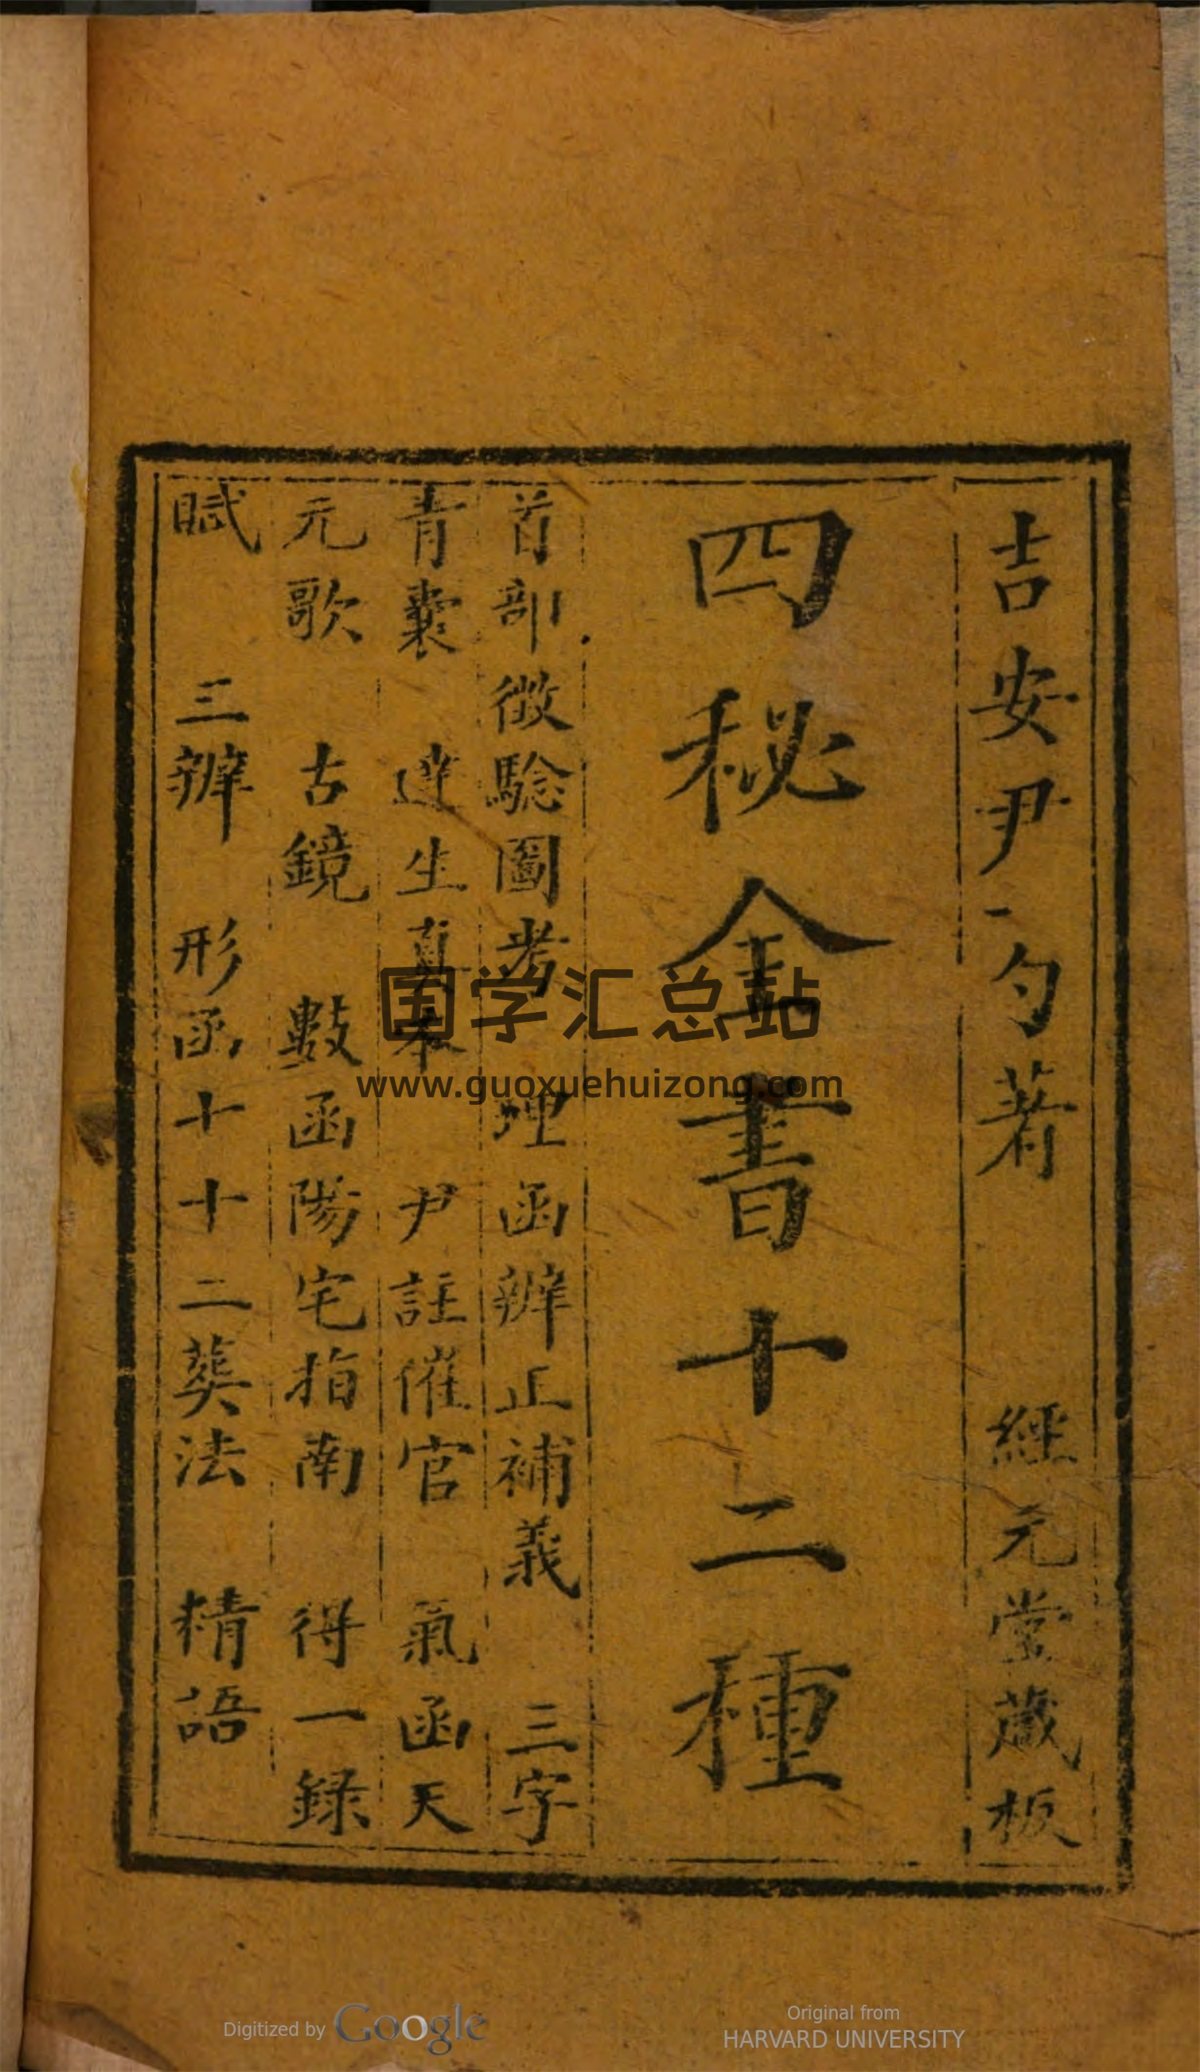 吉安尹一勺著　經元堂藏板
四秘全書十二種
首部徴騐圖考　理函辨正補義　三字
青囊　達生真本　尹註催官　氣函天
元歌　古鏡　數函陽宅指南　得一録
賦　三辨　形函十十二葬法　精語
国学汇总站
www.guoxuehuizong.com
Digitized by Google
Original from
HARVARD UNIVERSITY